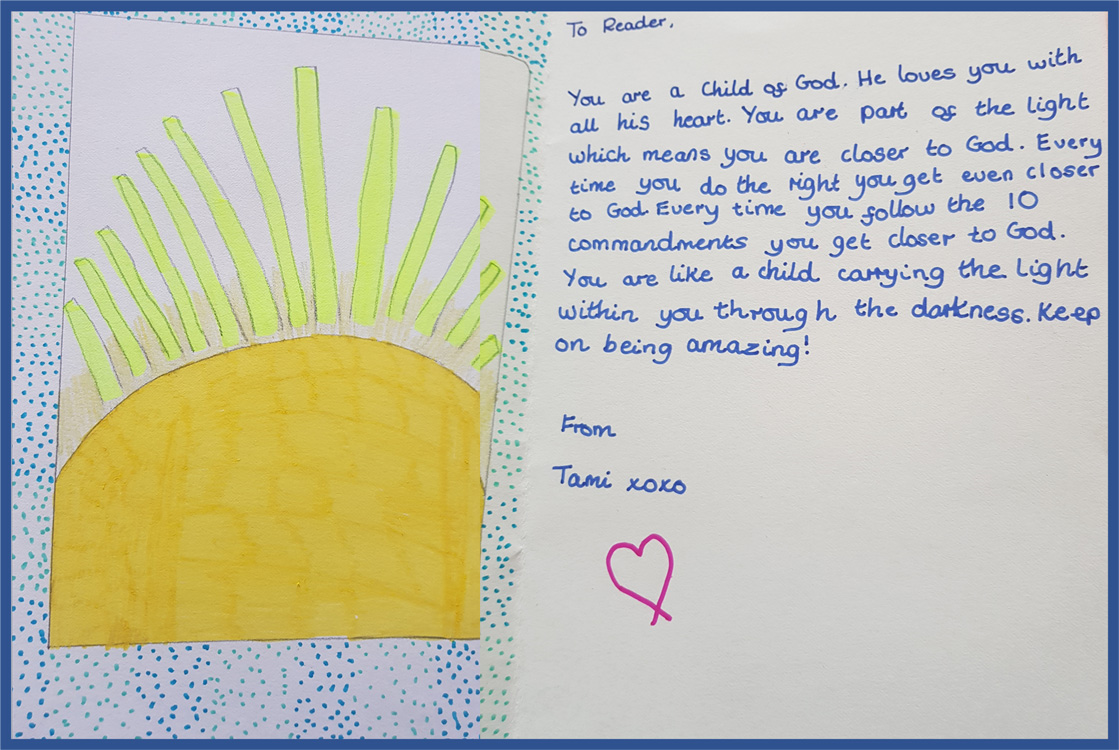 To Reader,
You are a Child of God. He loves you with
all his heart. You are part of the light
which means you are closer to God. Every
time you do the right you get even closer
to God. Every time you follow the 10
commandments you get closer to God.
You are like a child carrying the Light
within you through the darkness. Keep
on being amazing!
From
Tami xoxo